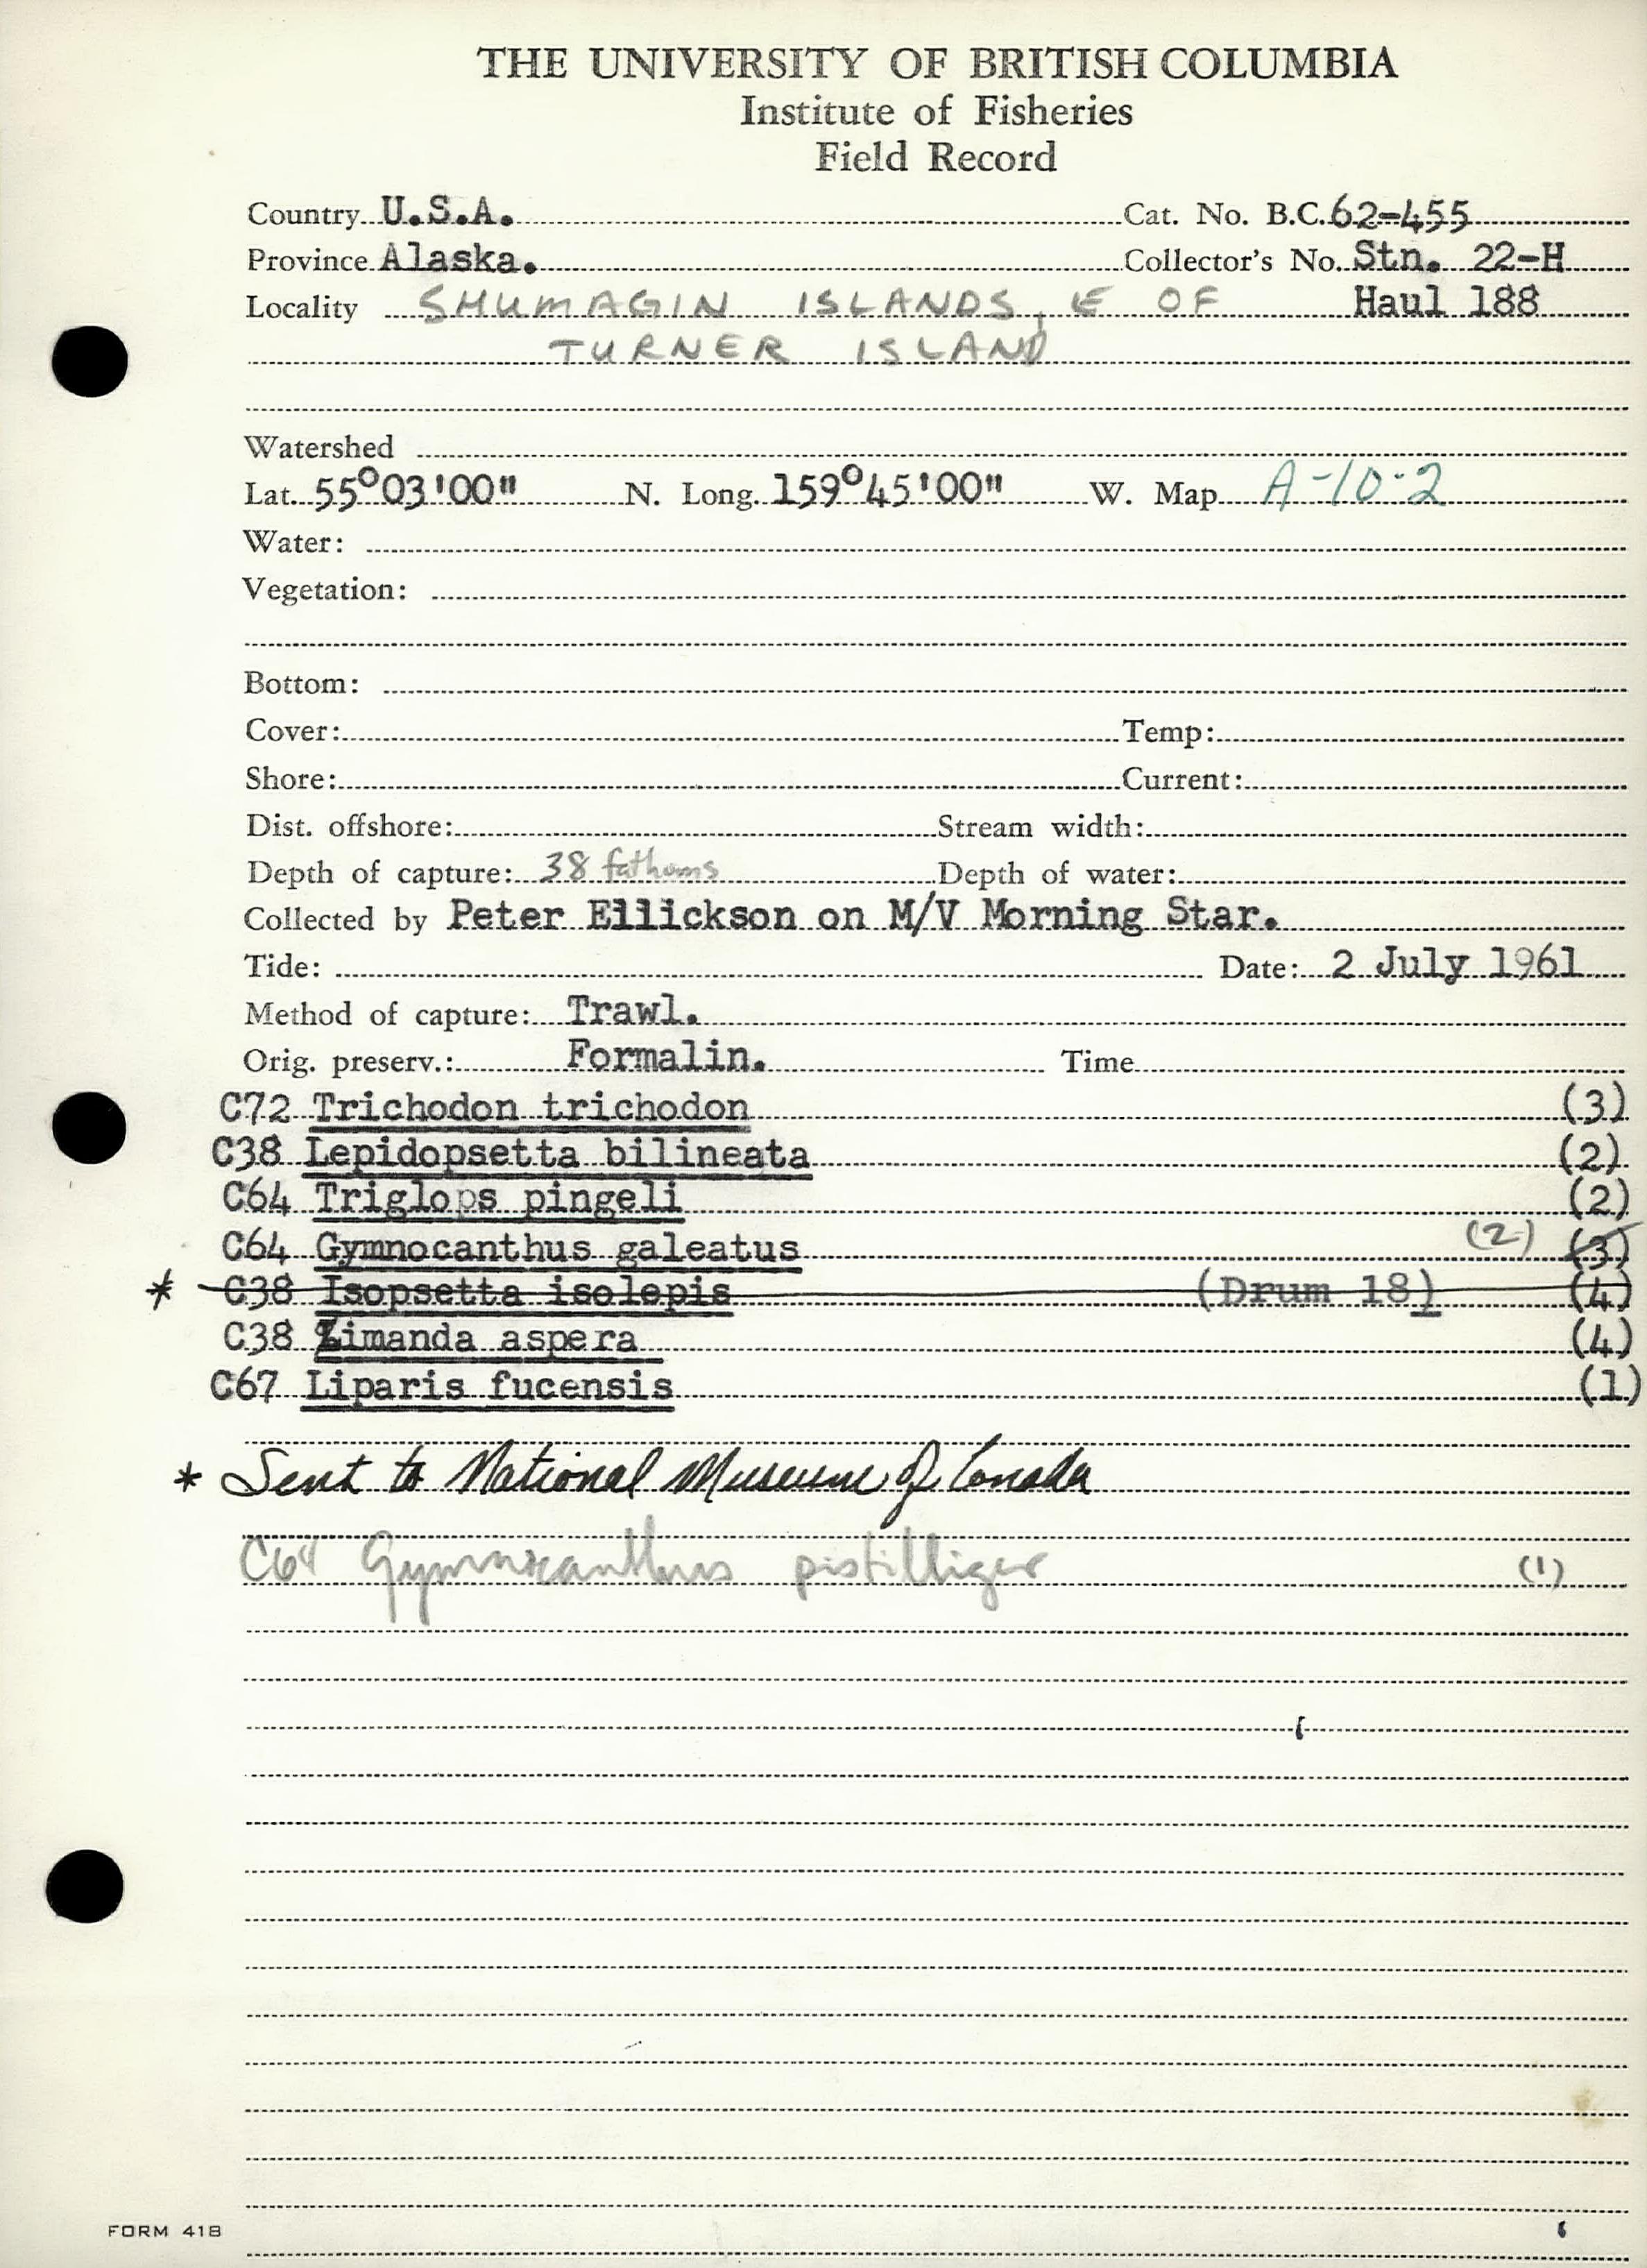 THE UNIVERSITY OF BRITISH COLUMBIA
Institute of Fisheries
Field Record
Country U.S.A. Cat. No. B.C. 62-455
Province Alaska. Collector's No. Stn. 22-H
Locality SHUMAGIN ISLANDS, E OF Haul 188
TURNER ISLAND
Watershed
Lat. 55°03'00" N. Long. 159°45'00" W. Map A-10-2
Water:
Vegetation:
Bottom:
Cover: Temp:
Shore: Current:
Dist. offshore: Stream width:
Depth of capture: 38 fathoms Depth of water:
Collected by Peter Ellickson on M/V Morning Star.
Tide: Date: 2 July 1961
Method of capture: Trawl.
Orig. preserv.: Formalin. Time
C72 Trichodon trichodon (3)
C38 Lepidopsetta bilineata (2)
C64 Triglops pingeli (2)
C64 Gymnocanthus galeatus (2) (3)
* C38 Isopsetta isolepis (Drum 18) (4)
C38 Limanda aspera (4)
C67 Liparis fucensis (1)
* Sent to National Museum of Canada
C64 Gymnocanthus pistilliger (1)
FORM 418